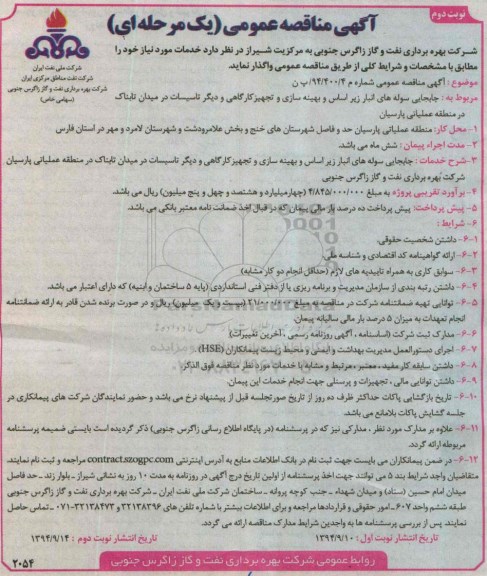 نوبت دوم
آگهی مناقصه عمومی (یک مرحله ای)
شرکت ملی نفت ایران
شرکت نفت مناطق مرکزی ایران
شرکت بهره برداری نفت و گاز زاگرس جنوبی
(سهامی خاص)
شرکت بهره برداری نفت و گاز زاگرس جنوبی به مرکزیت شیراز در نظر دارد خدمات مورد نیاز خود را
مطابق با مشخصات و شرایط کلی از طریق مناقصه عمومی واگذار نماید.
موضوع : آگهی مناقصه عمومی شماره م ۹۴/۴۰۰/۴/پ ن
مربوط به : جابجایی سوله های انبار زیر اساس و بهینه سازی و تجهیز کارگاهی و دیگر تاسیسات در میدان تابناک
در منطقه عملیاتی پارسیان
۱- محل کار: منطقه عملیاتی پارسیان حد و فاصل شهرستان های خنج و بخش علامرودشت و شهرستان لامرد و مهر در استان فارس
۲- مدت اجراء پیمان : شش ماه می باشد.
۳- شرح خدمات : جابجایی سوله های انبار زیر اساس و بهینه سازی و تجهیز کارگاهی و دیگر تاسیسات در میدان تابناک در منطقه عملیاتی پارسیان
شرکت بهره برداری نفت و گاز زاگرس جنوبی
۴- برآورد تقریبی پروژه به مبلغ ۴/۸۴۵/۰۰۰/۰۰۰ (چهارمیلیارد و هشتصد و چهل و پنج میلیون) ریال می باشد.
۵- پیش پرداخت: پیش پرداخت ده درصد بار مالی پیمان که در قبال اخذ ضمانت نامه معتبر بانکی می باشد.
۶- شرایط :
۶-۱- داشتن شخصیت حقوقی.
۶-۲- ارائه گواهینامه کد اقتصادی و شناسه ملی
۶-۳- سوابق کاری به همراه تاییدیه های لازم (حداقل انجام دو کار مشابه)
۶-۴- داشتن رتبه بندی از سازمان مدیریت و برنامه ریزی یا از دفتر فنی استانداردی (پایه ۵ ساختمان و ابنیه) که دارای اعتبار می باشد.
۶-۵- توانایی تهیه ضمانتنامه شرکت در مناقصه به مبلغ (بیست و یک میلیون) ریال و در صورت برنده شدن قادر به ارائه ضمانتنامه
انجام تعهدات به میزان ۵ درصد بار مالی سالیانه پیمان
۶-۶- مدارک ثبت شرکت (اساسنامه ، آگهی روزنامه رسمی ، آخرین تغییرات)
۶-۷- اجرای دستورالعمل مدیریت بهداشت و ایمنی و محیط زیست پیمانکاران (HSE)
۶-۸- داشتن سابقه کار مفید ، معتبر ، مرتبط و مشابه با خدمات مورد نظر مناقصه فوق الذکر.
۶-۹- داشتن توانایی مالی ، تجهیزات و پرسنلی جهت انجام خدمات این پیمان.
۶-۱۰- تاریخ بازگشایی پاکات حداکثر ظرف ده روز از تاریخ صورتجلسه قبل از پیشنهاد نرخ می باشد و حضور نمایندگان شرکت های پیمانکاری در
جلسه گشایش پاکات بلامانع می باشد.
۶-۱۱- علاوه بر مدارک مورد نظر ، مدارکی نیز که در پرسشنامه (در پایگاه اطلاع رسانی زاگرس جنوبی) ذکر گردیده است بایستی ضمیمه پرسشنامه
مربوطه ارائه گردد.
۶-۱۲- در ضمن پیمانکاران می بایست جهت ثبت نام در بانک اطلاعات منابع به آدرس اینترنتی contract.szogpc.com مراجعه و ثبت نام نمایند.
متقاضیان واجد شرایط بند ۵ می توانند جهت اخذ پرسشنامه از اولین تاریخ درج آگهی در روزنامه به مدت ۱۰ روز به نشانی شیراز ـ بلوار زند ـ حد فاصل
میدان امام حسین (ستاد) و میدان شهداء ـ جنب کوچه پروانه ـ ساختمان شرکت ملی نفت ایران ـ شرکت بهره برداری نفت و گاز زاگرس جنوبی
طبقه ششم واحد ۶۰۷ ـ امور حقوقی و قراردادها مراجعه و برای اطلاعات بیشتر با شماره تلفن های ۳۲۱۳۸۳۹۶ و ۳۲۱۳۸۴۷۳-۰۷۱ تماس حاصل
نمایند. پس از بررسی پرسشنامه ها به واجدین شرایط مدارک مناقصه ارائه می گردد.
تاریخ انتشار نوبت اول : ۱۳۹۴/۹/۱۰
تاریخ انتشار نوبت دوم : ۱۳۹۴/۹/۱۴
روابط عمومی شرکت بهره برداری نفت و گاز زاگرس جنوبی
۲۰۵۴